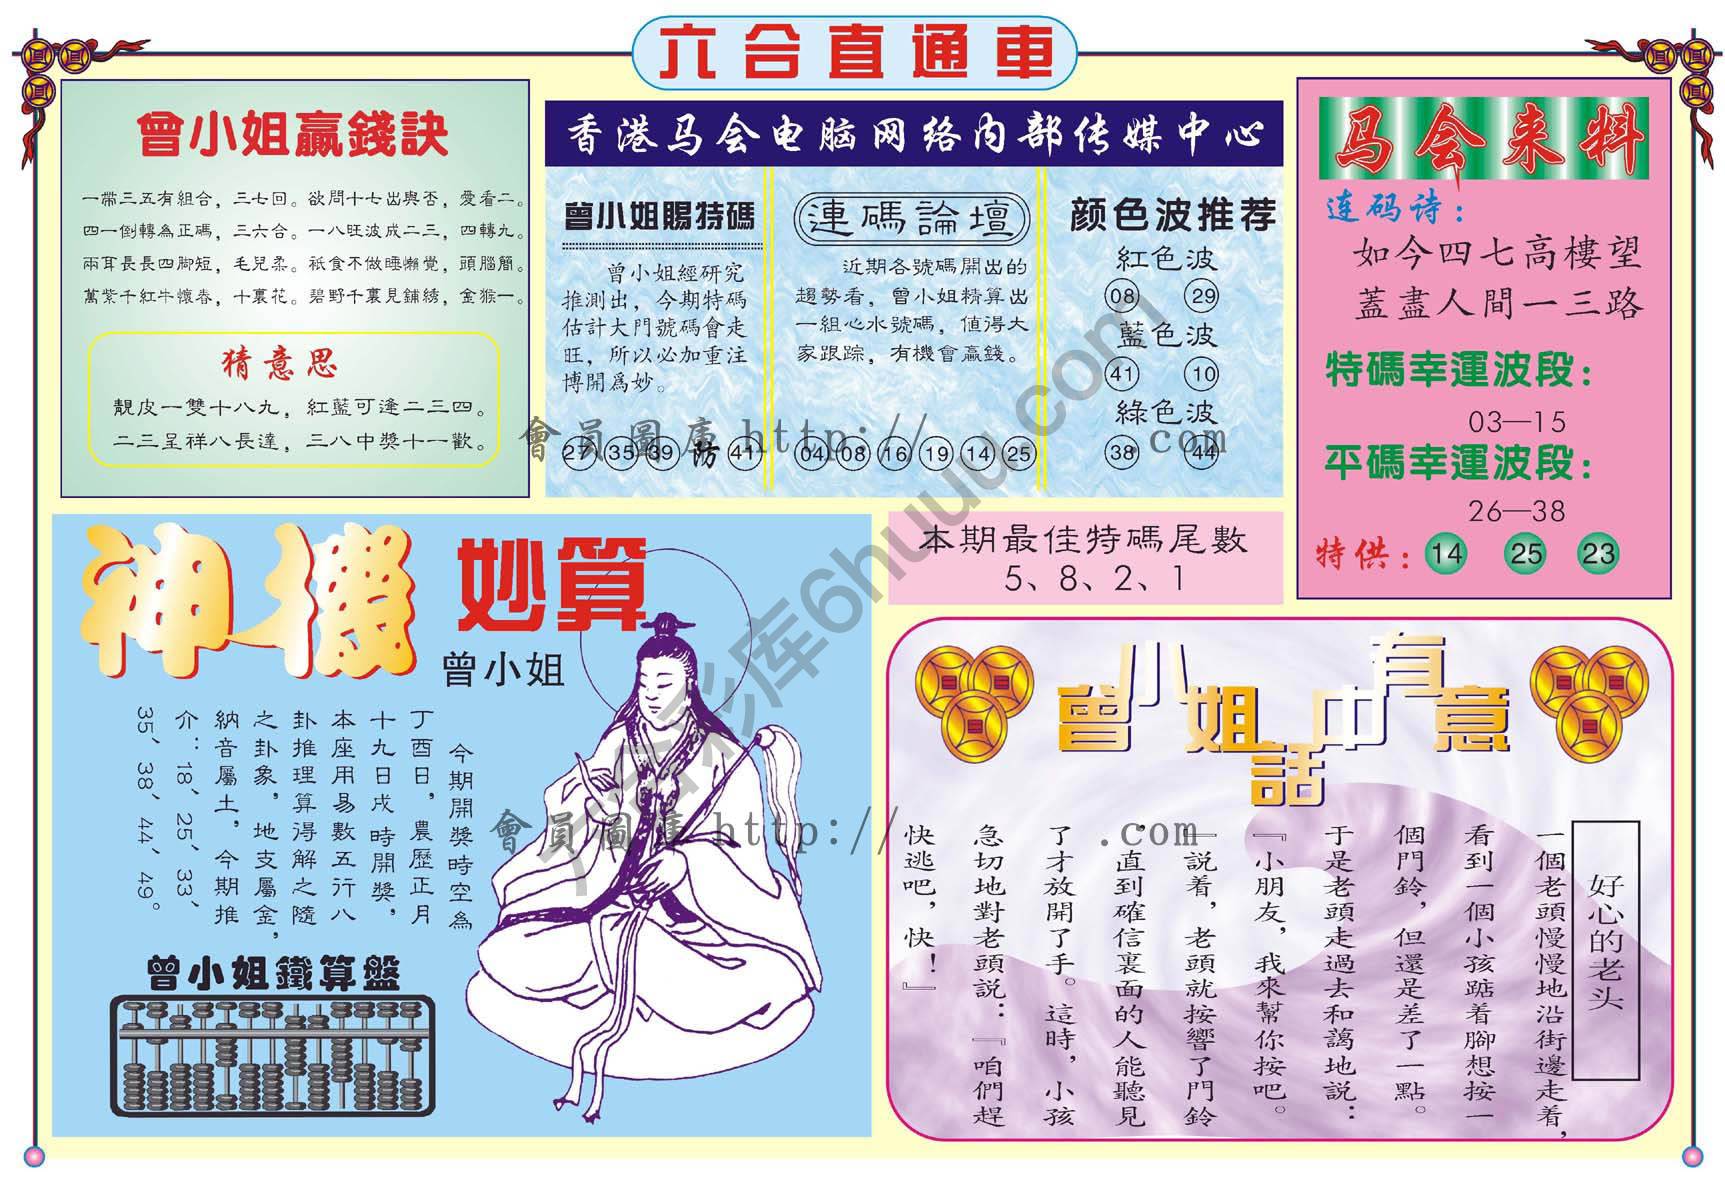 六合直通車
曾小姐贏錢訣
一帶三五有組合，三七回。欲問十七出與否，愛看二。
四一倒轉為正碼，三六合。一八旺波成二三，四轉九。
兩耳長長四脚短，毛兒柔。祇食不做睡懶覺，頭腦簡。
萬紫千紅牛懷春，十裏花。碧野千裏見鋪綉，金猴一。
猜意思
靚皮一雙十八九，紅藍可逢二三四。
二三呈祥八長達，三八中獎十一歡。
香港马会电脑网络内部传媒中心
曾小姐賜特碼
曾小姐經研究
推測出，今期特碼
估計大門號碼會走
旺，所以必加重注
博開爲妙。
27 35 39 防 41
連碼論壇
近期各號碼開出的
趨勢看，曾小姐精算出
一組心水號碼，值得大
家跟踪，有機會贏錢。
04 08 16 19 14 25
颜色波推荐
紅色波
08 29
藍色波
41 10
綠色波
38 44
马会来料
连码诗：
如今四七高樓望
蓋盡人間一三路
特碼幸運波段：
03—15
平碼幸運波段：
26—38
特供： 14 25 23
本期最佳特碼尾數
5、8、2、1
會員圖庫 http:// .com
六合彩库6huuu.com
神機妙算
曾小姐
今期開獎時空為
丁酉日，農歷正月
十九日戌時開獎，
本座用易數五行八
卦推理算得解之隨
之卦象，地支屬金，
納音屬土，今期推
介：18、25、33、
35、38、44、49。
曾小姐鐵算盤
會員圖庫 http:// .com
曾小姐話中有意
好心的老头
一個老頭慢慢地沿街邊走着，
看到一個小孩踮着腳想按一
個門鈴，但還是差了一點。
于是老頭走過去和藹地説：
『小朋友，我來幫你按吧。
』説着，老頭就按響了門鈴
，直到確信裏面的人能聽見
了才放開了手。這時，小孩
急切地對老頭説：『咱們趕
快逃吧，快！』